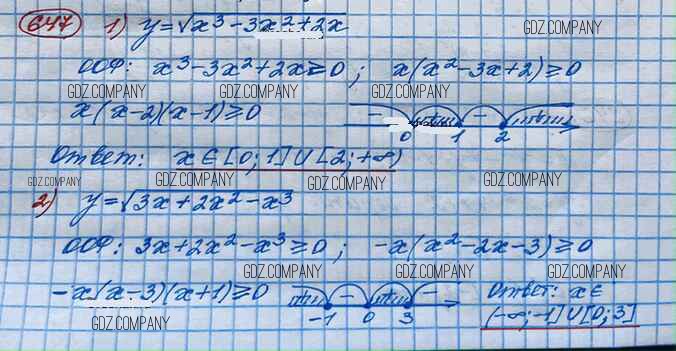 647 1) y=√x³-3x²+2x GDZ.COMPANY
ООФ: x³-3x²+2x≥0; x(x²-3x+2)≥0
GDZ.COMPANY GDZ.COMPANY GDZ.COMPANY
x(x-2)(x-1)≥0 - + - + 0 1 2
Ответ: x∈[0;1]∪[2;+∞)
GDZ.COMPANY GDZ.COMPANY GDZ.COMPANY GDZ.COMPANY
2) y=√3x+2x²-x³
ООФ: 3x+2x²-x³≥0; -x(x²-2x-3)≥0
GDZ.COMPANY GDZ.COMPANY GDZ.COMPANY
-x(x-3)(x+1)≥0 + - + - -1 0 3 Ответ: x∈
(-∞;-1]∪[0;3]
GDZ.COMPANY GDZ.COMPANY